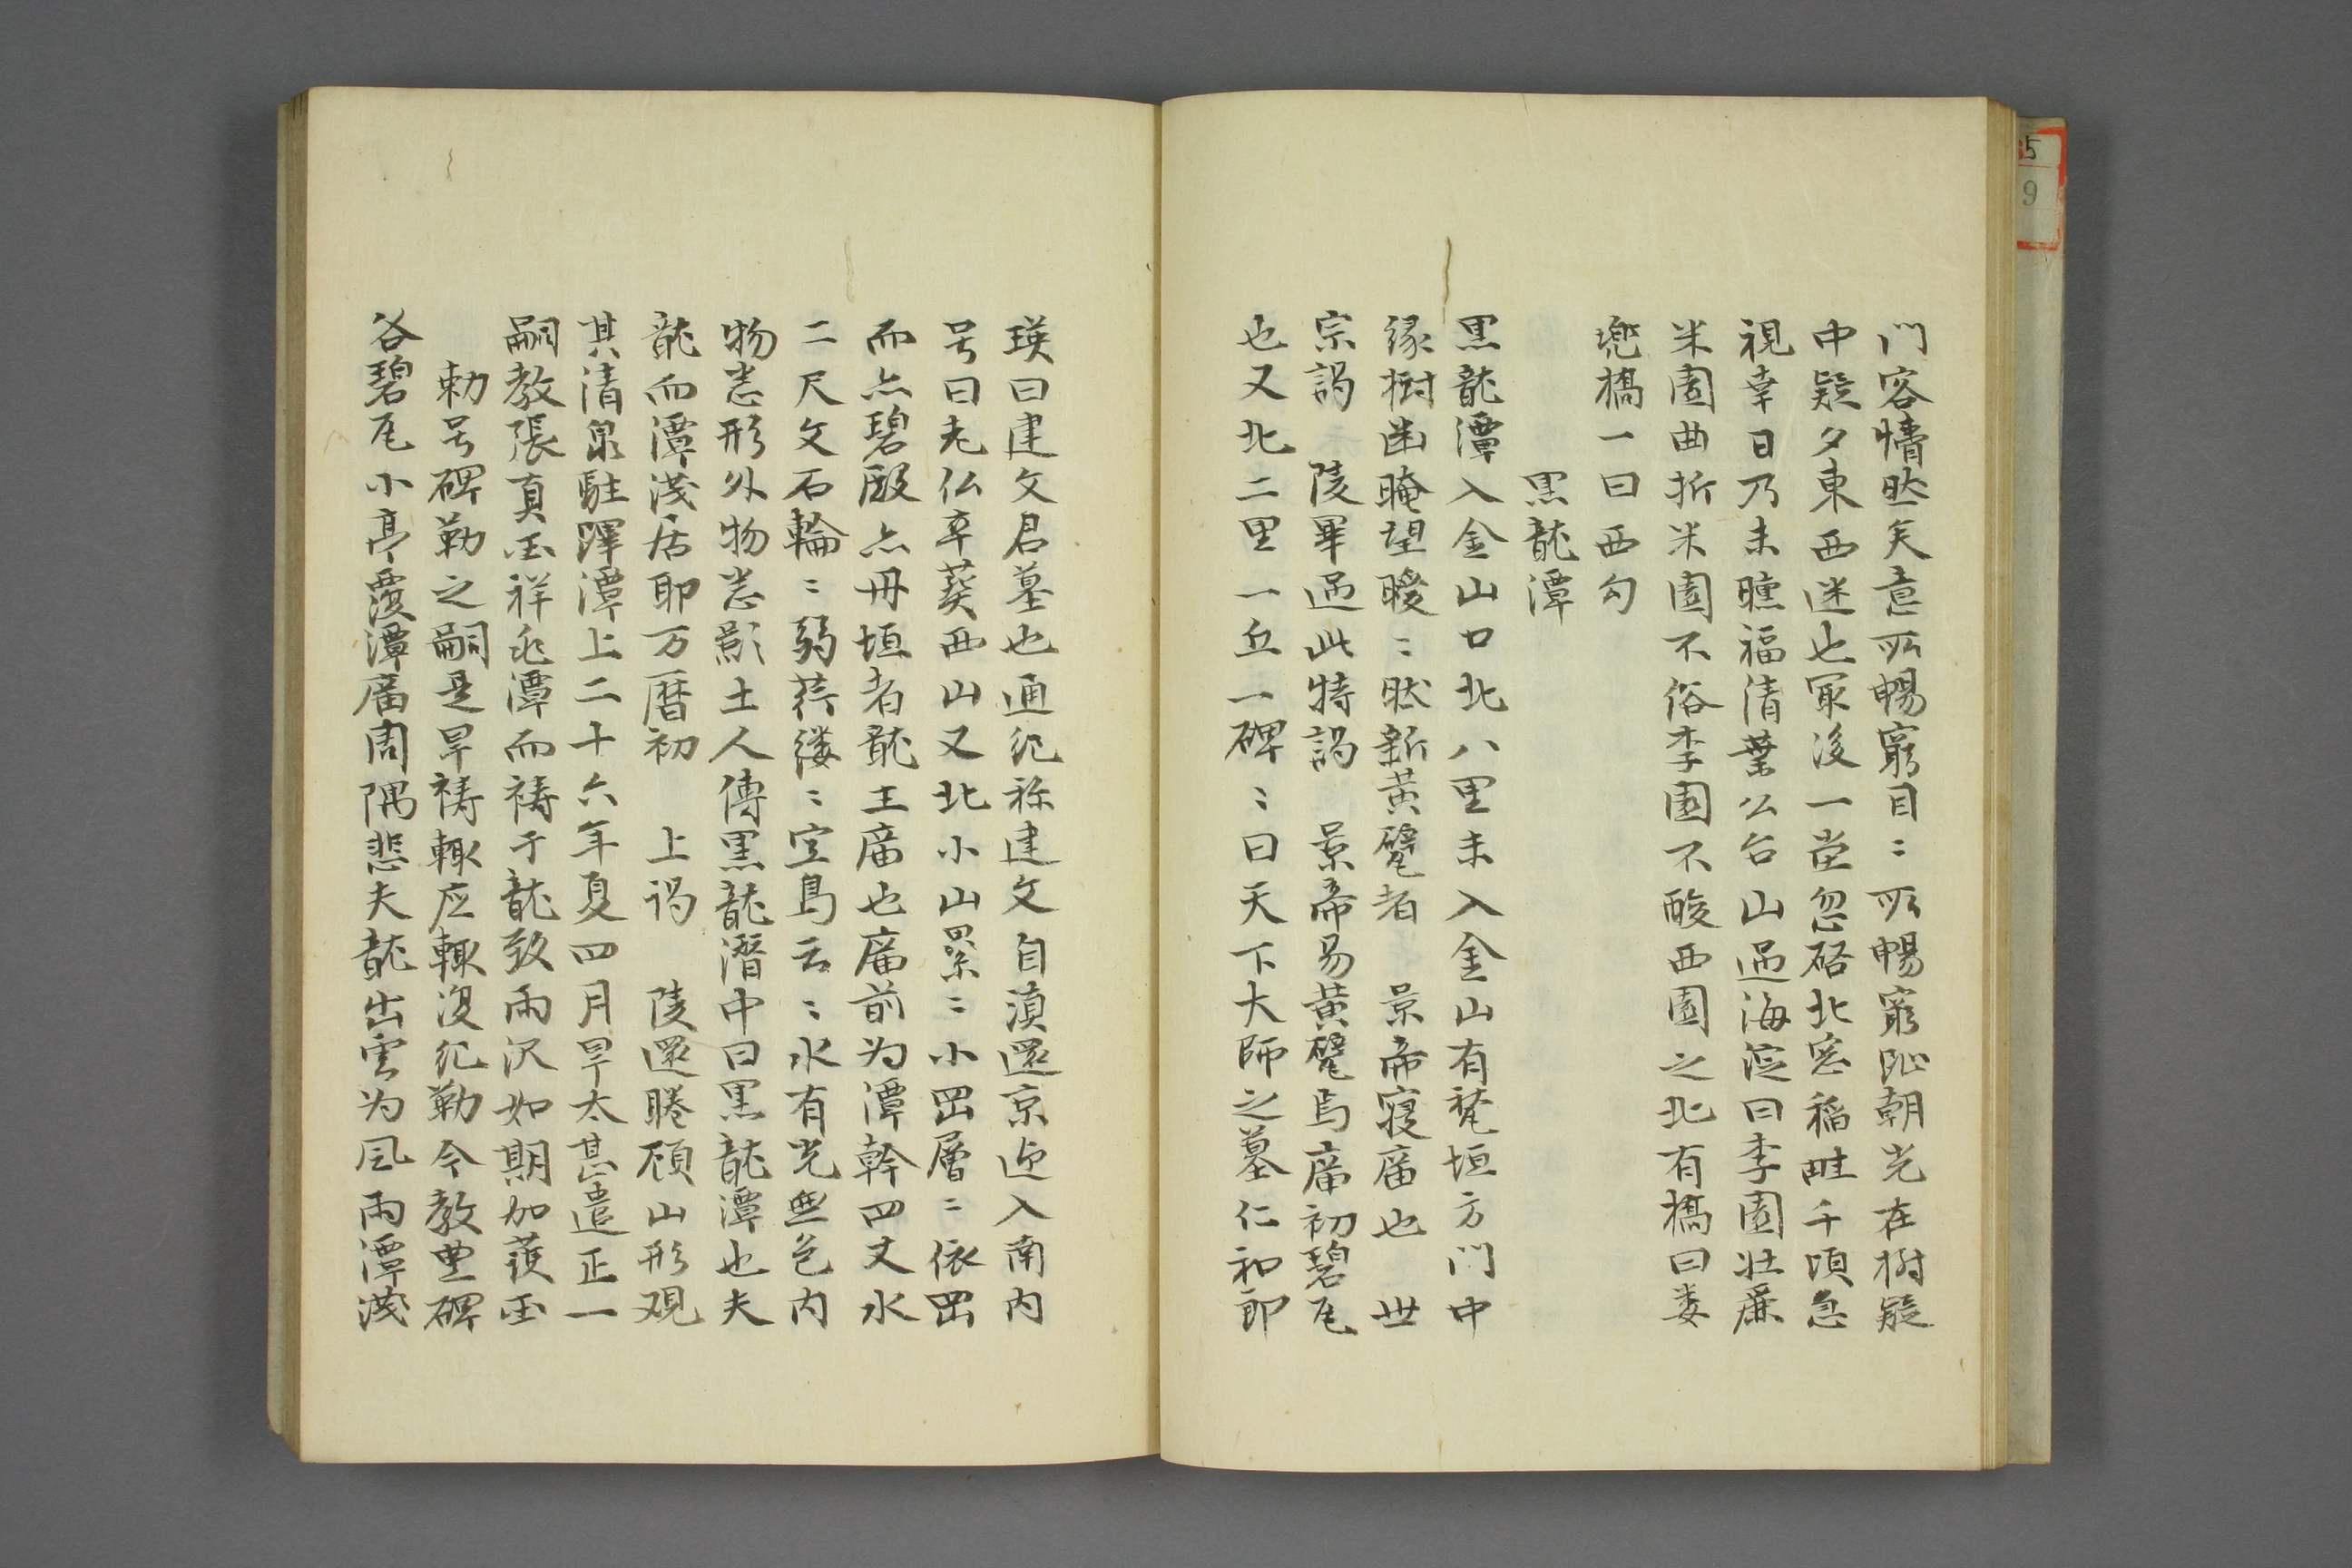 門客懵然矣意所暢窮目〻所暢窮趾朝光在樹疑
中疑夕東西迷也最後一堂忽啓北窓稲畦千頃急
視幸日乃未曛福清葉公台山過海淀曰李園壮麗
米園曲折米園不俗李園不酸西園之北有橋曰婁
兜橋一曰西勾
黒龍潭
黒龍潭入金山口北八里未入金山有甃垣方門中
緑樹幽晻望暧〻然新黄甓者 景帝寝庿也 世
宗謁 陵畢過此特謁 景帝易黄甓焉庿初碧瓦
也又北二里一丘一碑〻曰天下大師之墓仁和郎
瑛曰建文君墓也通紀称建文自滇還京迎入南内
号曰老仏卒葬西山又北小山累〻小岡層〻依岡
而亦碧殿亦丹垣者龍王庿也庿前为潭幹四丈水
二尺文石輪〻弱荇縷〻空鳥云〻水有光無色内
物悉形外物悉影土人傳黒龍潜中曰黒龍潭也夫
龍而潭浅居耶万暦初 上謁 陵還睠顧山形观
其清泉駐蹕潭上二十六年夏四月旱太甚遣正一
嗣教張真国祥即潭而祷于龍致雨沢如期加護国
勅号碑勒之嗣是旱祷輙应輙没紀勒今教豊碑
各碧瓦小亭覆潭庿周隅悲夫龍出雲为风雨潭浅
5
9